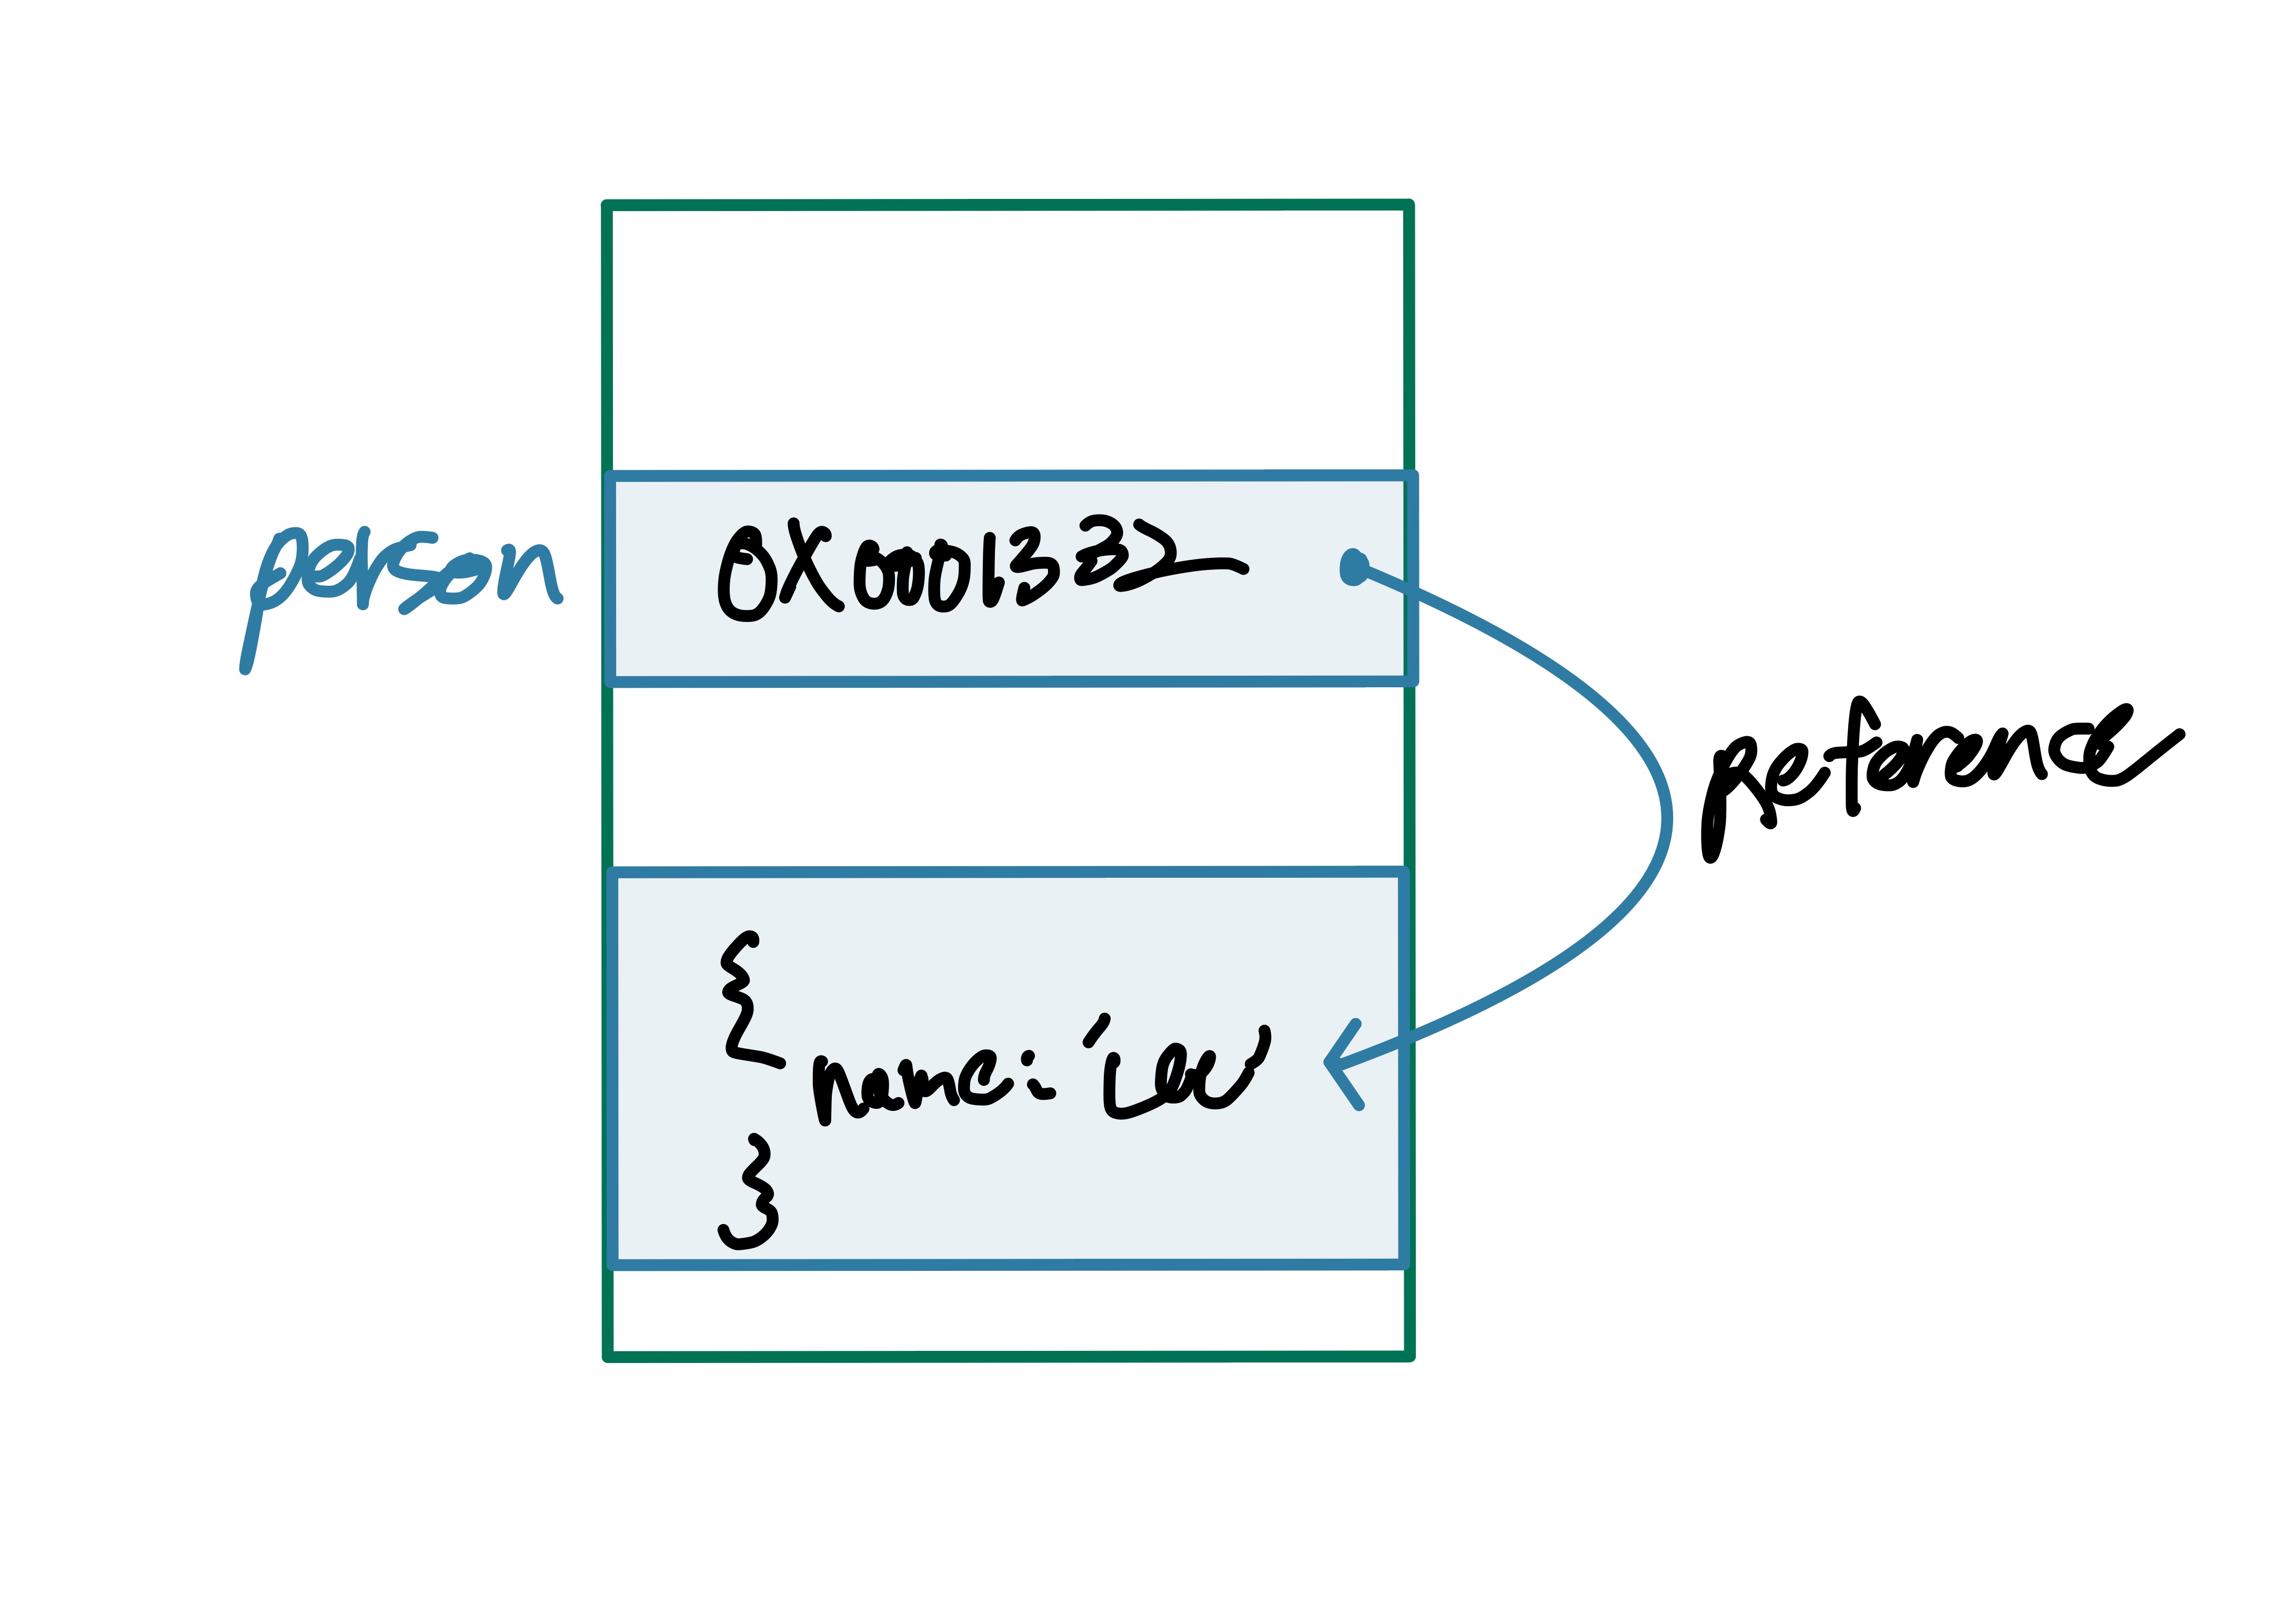 person
0X0001332
Reference
{
name:
}